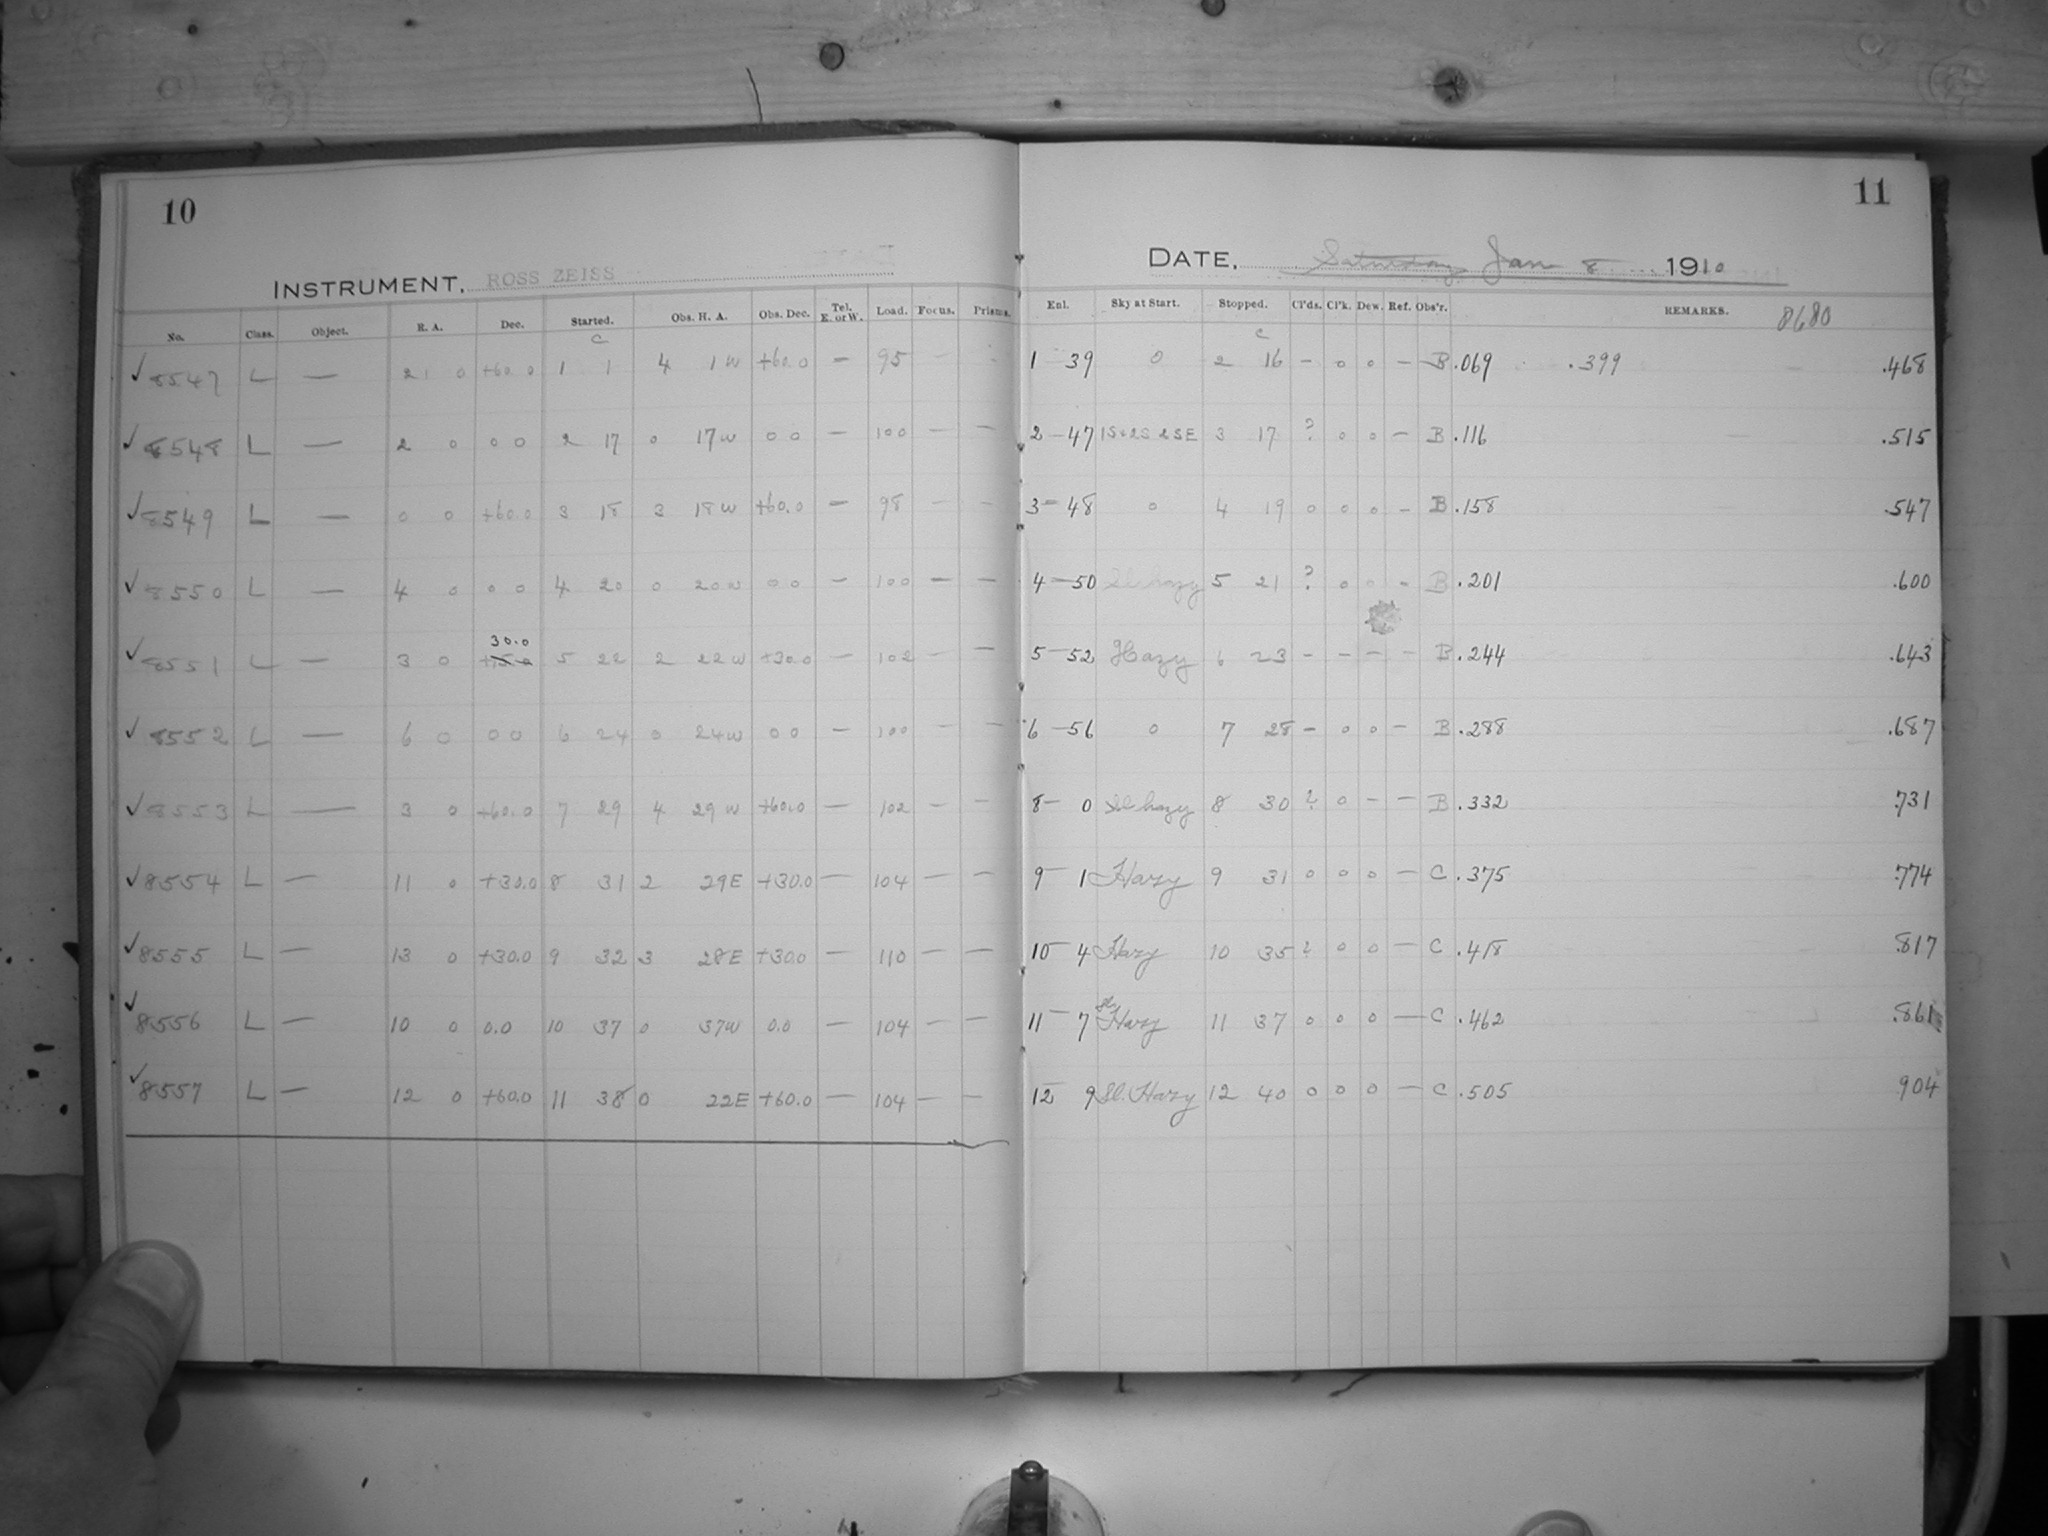 10
INSTRUMENT, ROSS ZEISS
No. Class. Object. R. A. Dec. Started. Obs. H. A. Obs. Dec. Tel. E. or W. Load. Focus. Prisms.
C
✓ 8547 L — 21 0 +60.0 1 1 4 1 W +60.0 — 95 —
✓ 8548 L — 2 0 0 0 2 17 0 17 W 0 0 — 100 — —
✓ 8549 L — 0 0 +60.0 3 18 3 18 W +60.0 — 98 — —
✓ 8550 L — 4 0 0 0 4 20 0 20 W 0 0 — 100 — —
30.0
✓ 8551 L — 3 0 +15.0 5 22 2 22 W +30.0 — 102 — —
✓ 8552 L — 6 0 0 0 6 24 0 24 W 0 0 — 100 — —
✓ 8553 L — 3 0 +60.0 7 29 4 29 W +60.0 — 102 — —
✓ 8554 L — 11 0 +30.0 8 31 2 29 E +30.0 — 104 — —
✓ 8555 L — 13 0 +30.0 9 32 3 28 E +30.0 — 110 — —
✓ 8556 L — 10 0 0.0 10 37 0 37 W 0.0 — 104 — —
✓ 8557 L — 12 0 +60.0 11 38 0 22 E +60.0 — 104 — —
11
DATE, Saturday Jan 8 1910
Enl. Sky at Start. Stopped. Cl'ds. Cl'k. Dew. Ref. Obs'r. REMARKS. 8680
C
1 — 39 0 2 16 — 0 0 — B .069 .399 .468
2 — 47 1S&2S 2SE 3 17 ? 0 0 — B .116 .515
3 — 48 0 4 19 0 0 0 — B .158 .547
4 — 50 Sl hazy 5 21 ? 0 0 — B .201 .600
5 — 52 Hazy 6 23 — — — — B .244 .643
6 — 56 0 7 28 — 0 0 — B .288 .687
8 — 0 Sl hazy 8 30 ? 0 — — B .332 .731
9 — 1 Hazy 9 31 0 0 0 — C .375 .774
10 — 4 Hazy 10 35 ? 0 0 — C .418 .817
11 — 7 Sl Hazy 11 37 0 0 0 — C .462 .861
12 — 9 Sl. Hazy 12 40 0 0 0 — C .505 904